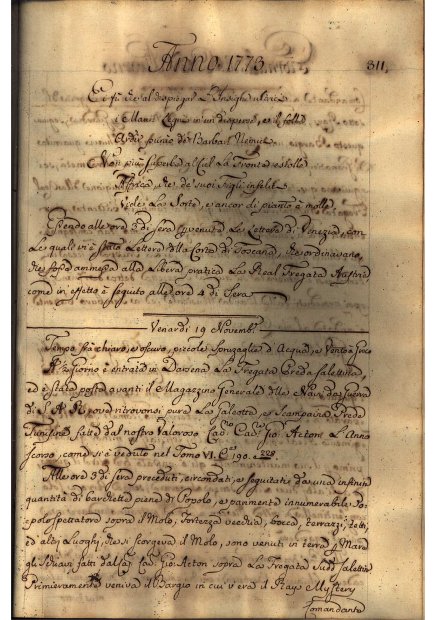 Anno 1773.
311.
Ei fu che al dispiegar L'Insegne ultrici
i Mauri Legni in un disperse, e il folle
Ardir punio di Barbari Nemici
Non più superba al Ciel La Fronte estolle
Africa, che de' suoi Figli infelici
Vide La Sorte, e ancor di pianto è molle
Essendo alle ore 3 di sera pervenuta La Lettera di Venezia, con
Le quali vi è stato Lettera della Corte di Toscana, che ordinavano,
che fosse ammessa alla Libera pratica La Real Fregata Austria
come in effetto è seguito alle ore 4 di Sera
Venerdì 19 Novemb.
Tempo fra chiaro, e oscuro, piccole Spruzaglie d'Acqua, e Vento
A ½ Giorno è entrata in Darsena La Fregata Preda Salettina
ed è stata posta avanti il Magazzino Generale delle Navi da Guerra
di S. A. R. ove ritrovonsi pure La Galeotta, e Scampavia Prede
Tunisine fatte dal nostro Valoroso Cav. Gio: Acton L'Anno
scorso, come si è veduto nel Tomo VI. C. 190. e 228
Alle ore 3 di sera preceduti, circondati, e seguitati da una infinita
quantità di barchette piene di Popolo, e parimente innumerabile
popolo spettatore sopra il Molo, Fortezza vecchia, bocca, terrazzi, tetti,
ed altri Luoghi, che si scorgeva il Molo, sono venuti in terra p. Mare
gli Schiavi fatti dal Cav. Gio: Acton sopra La Fregata Salettina
Primieramente veniva il Bargio in cui v'era il Rays Mystery
Comandante